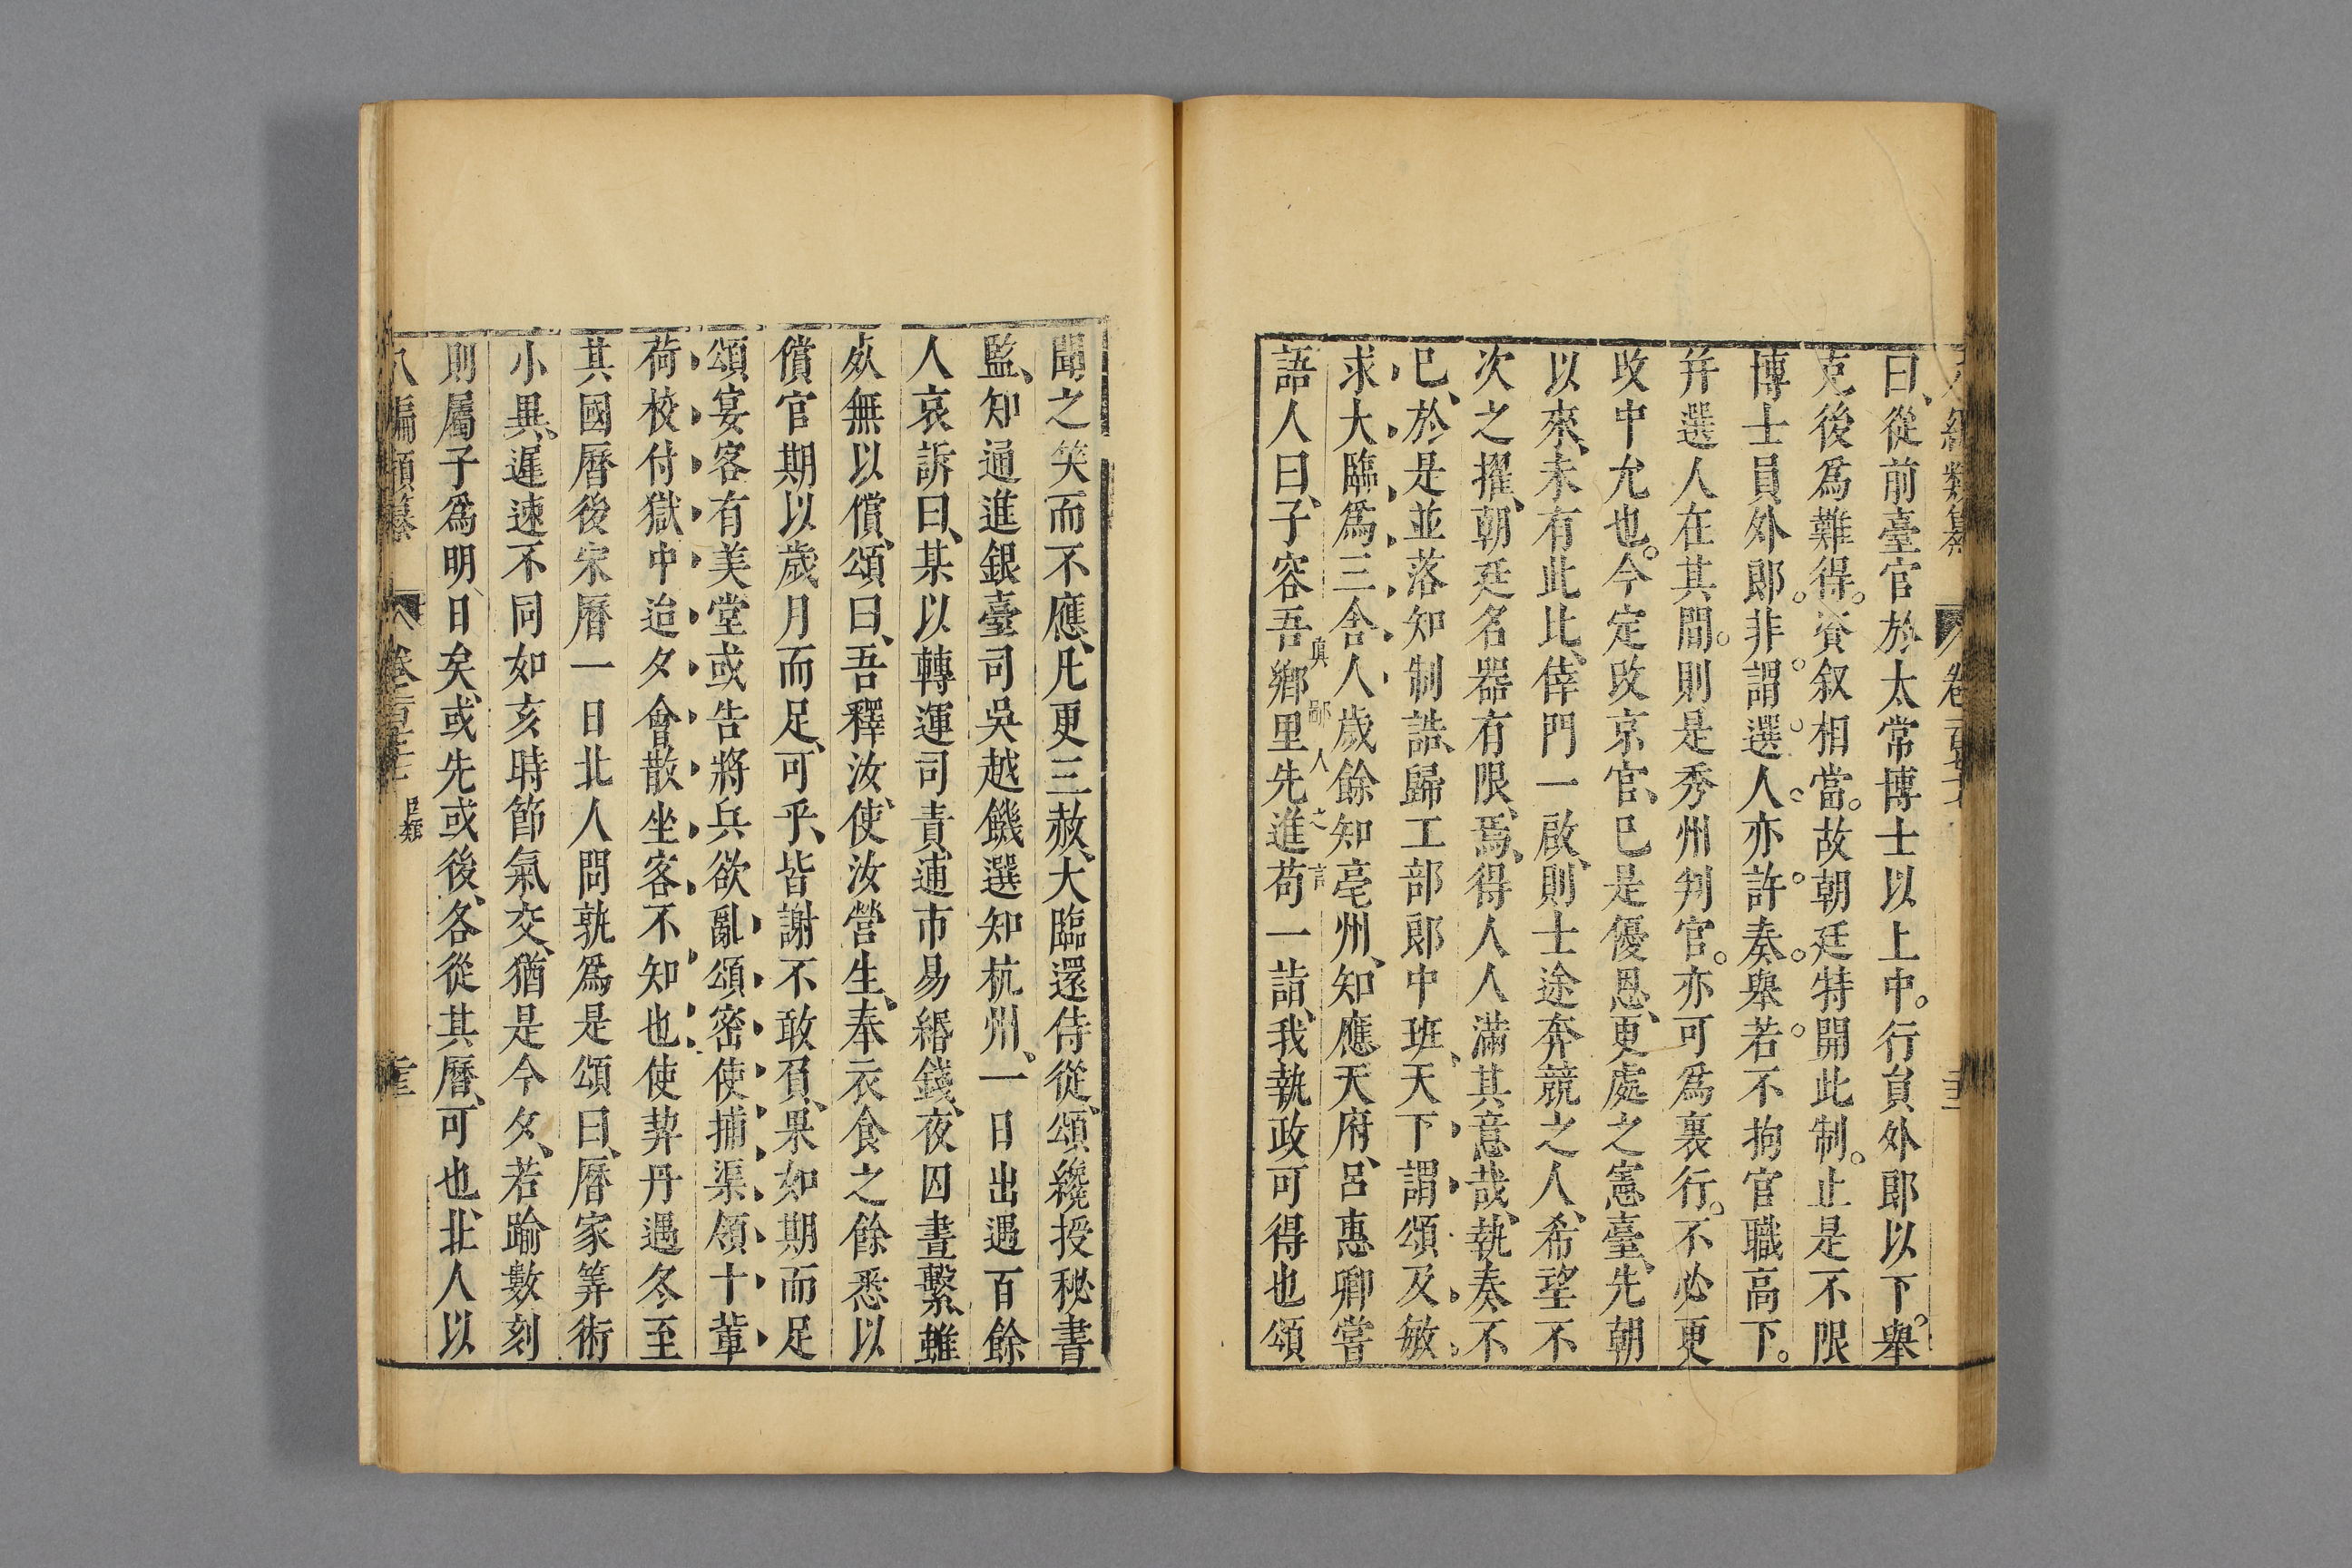 八編類纂 卷二百 三十
曰、從前臺官於太常博士以上中。行員外郎以下。舉
克後爲難得。資叙相當。故朝廷特開此制。止是不限
博士員外郎。非謂選人亦許奏舉若不拘官職高下。
并選人在其間。則是秀州判官。亦可爲裏行。不必更
改中允也。今定改京官、已是優恩、更處之憲臺、先朝
以來、未有此比、倖門一啟、則士途奔競之人、希望不
次之擢、朝廷名器有限、焉、得人人滿其意哉、執奏不
已、於是並落知制誥、歸工部郎中班、天下謂頌及敏
求大臨爲三舍人、歲餘知亳州、知應天府、呂惠卿嘗
語人曰、子容吾鄉里先進苟一詣、我執政可得也頌
真鄙人之言
聞之笑而不應、凡更三赦、大臨還侍從、頌纔授秘書
監、知通進銀臺司吳越饑選知杭州、一日出遇百餘
人哀訴曰、某以轉運司責逋市易緡錢、夜囚晝繫、雖
死無以償、頌曰、吾釋汝、使汝營生、奉衣食之餘悉以
償官期以歲月而足、可乎、皆謝不敢負、果如期而足
頌宴客有美堂或告將兵欲亂頌密使捕渠領十輩
荷校付獄中迨夕會散坐客不知也使契丹遇冬至
其國曆後宋曆一日北人問孰爲是頌曰、曆家筭術
小異、遲速不同如亥時節氣交、猶是今夕、若踰數刻
則屬子爲明日矣、或先或後、各從其曆、可也、北人以
八編類纂 卷二百 臣類